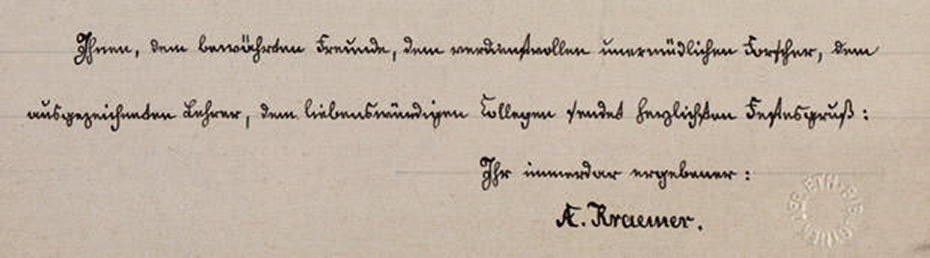 Ihnen, dem bewährten Freunde, dem verdienstvollen unermüdlichen Forscher, dem
ausgezeichneten Lehrer, dem liebenswürdigen Collegen sendet herzlichsten Festesgruß:
Ihr immerdar ergebener:
A. Kraemer.